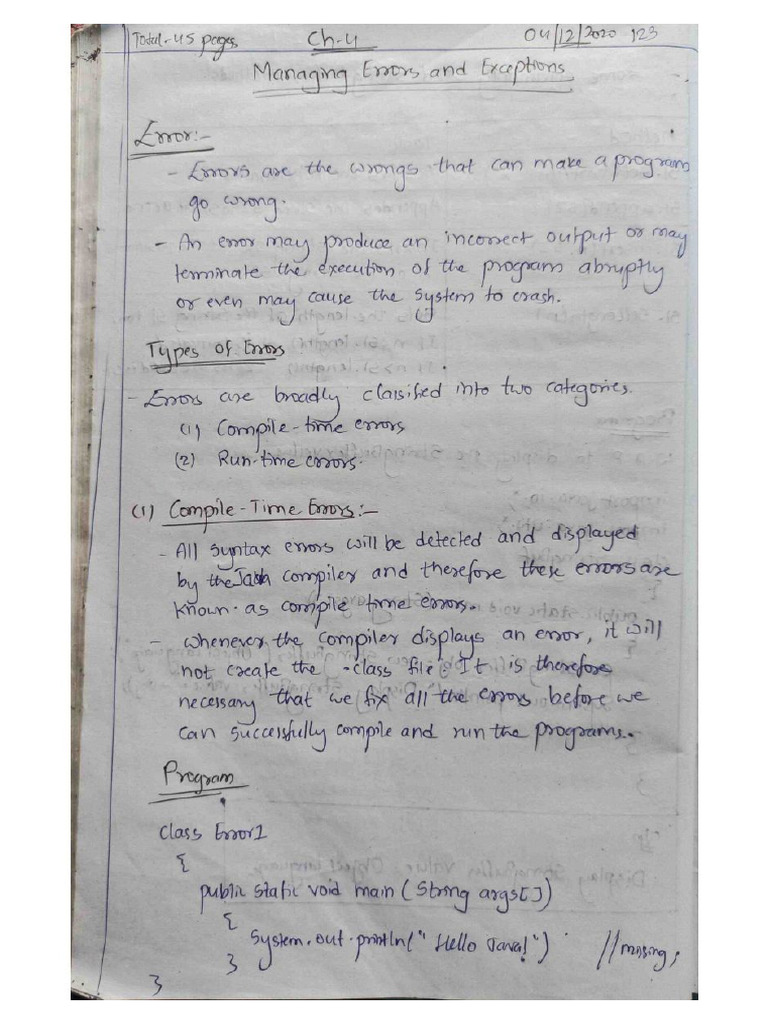 Total-45 pages Ch-4 04/12/2020 123
Managing Errors and Exceptions
Error:-
- Errors are the wrongs that can make a program
go wrong.
- An error may produce an incorrect output or may
terminate the execution of the program abruptly
or even may cause the system to crash.
Types of Errors
- Errors are broadly classified into two categories.
(1) Compile-time errors
(2) Run-time errors.
(1) Compile-Time Errors:-
- All syntax errors will be detected and displayed
by the Java compiler and therefore these errors are
known as compile time errors.
- whenever the compiler displays an error, it will
not create the .class file. It is therefore
necessary that we fix all the errors before we
can successfully compile and run the programs.
Program
class Error1
{
public static void main (String args[])
{
System.out.println(" Hello Java!") //missing ;
}
}